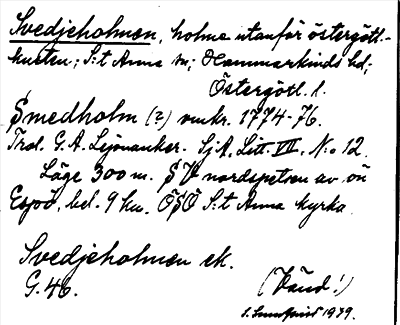 Svedjeholmen, holme utanför östergötl.-
kusten; S:t Anna sn; Hammarkinds hd;
Östergötl. l.
Smedholm (?) omkr. 1774-76.
Trol. G. A. Lejonanker. SjA, Litt. VII, N:o 12.
Läge 300 m. SV nordspetsen av ön
Espö, bel. 9 km. ÖSÖ S:t Anna kyrka.
Svedjeholmen ek.
G. 46.
(Vänd!)
1939.